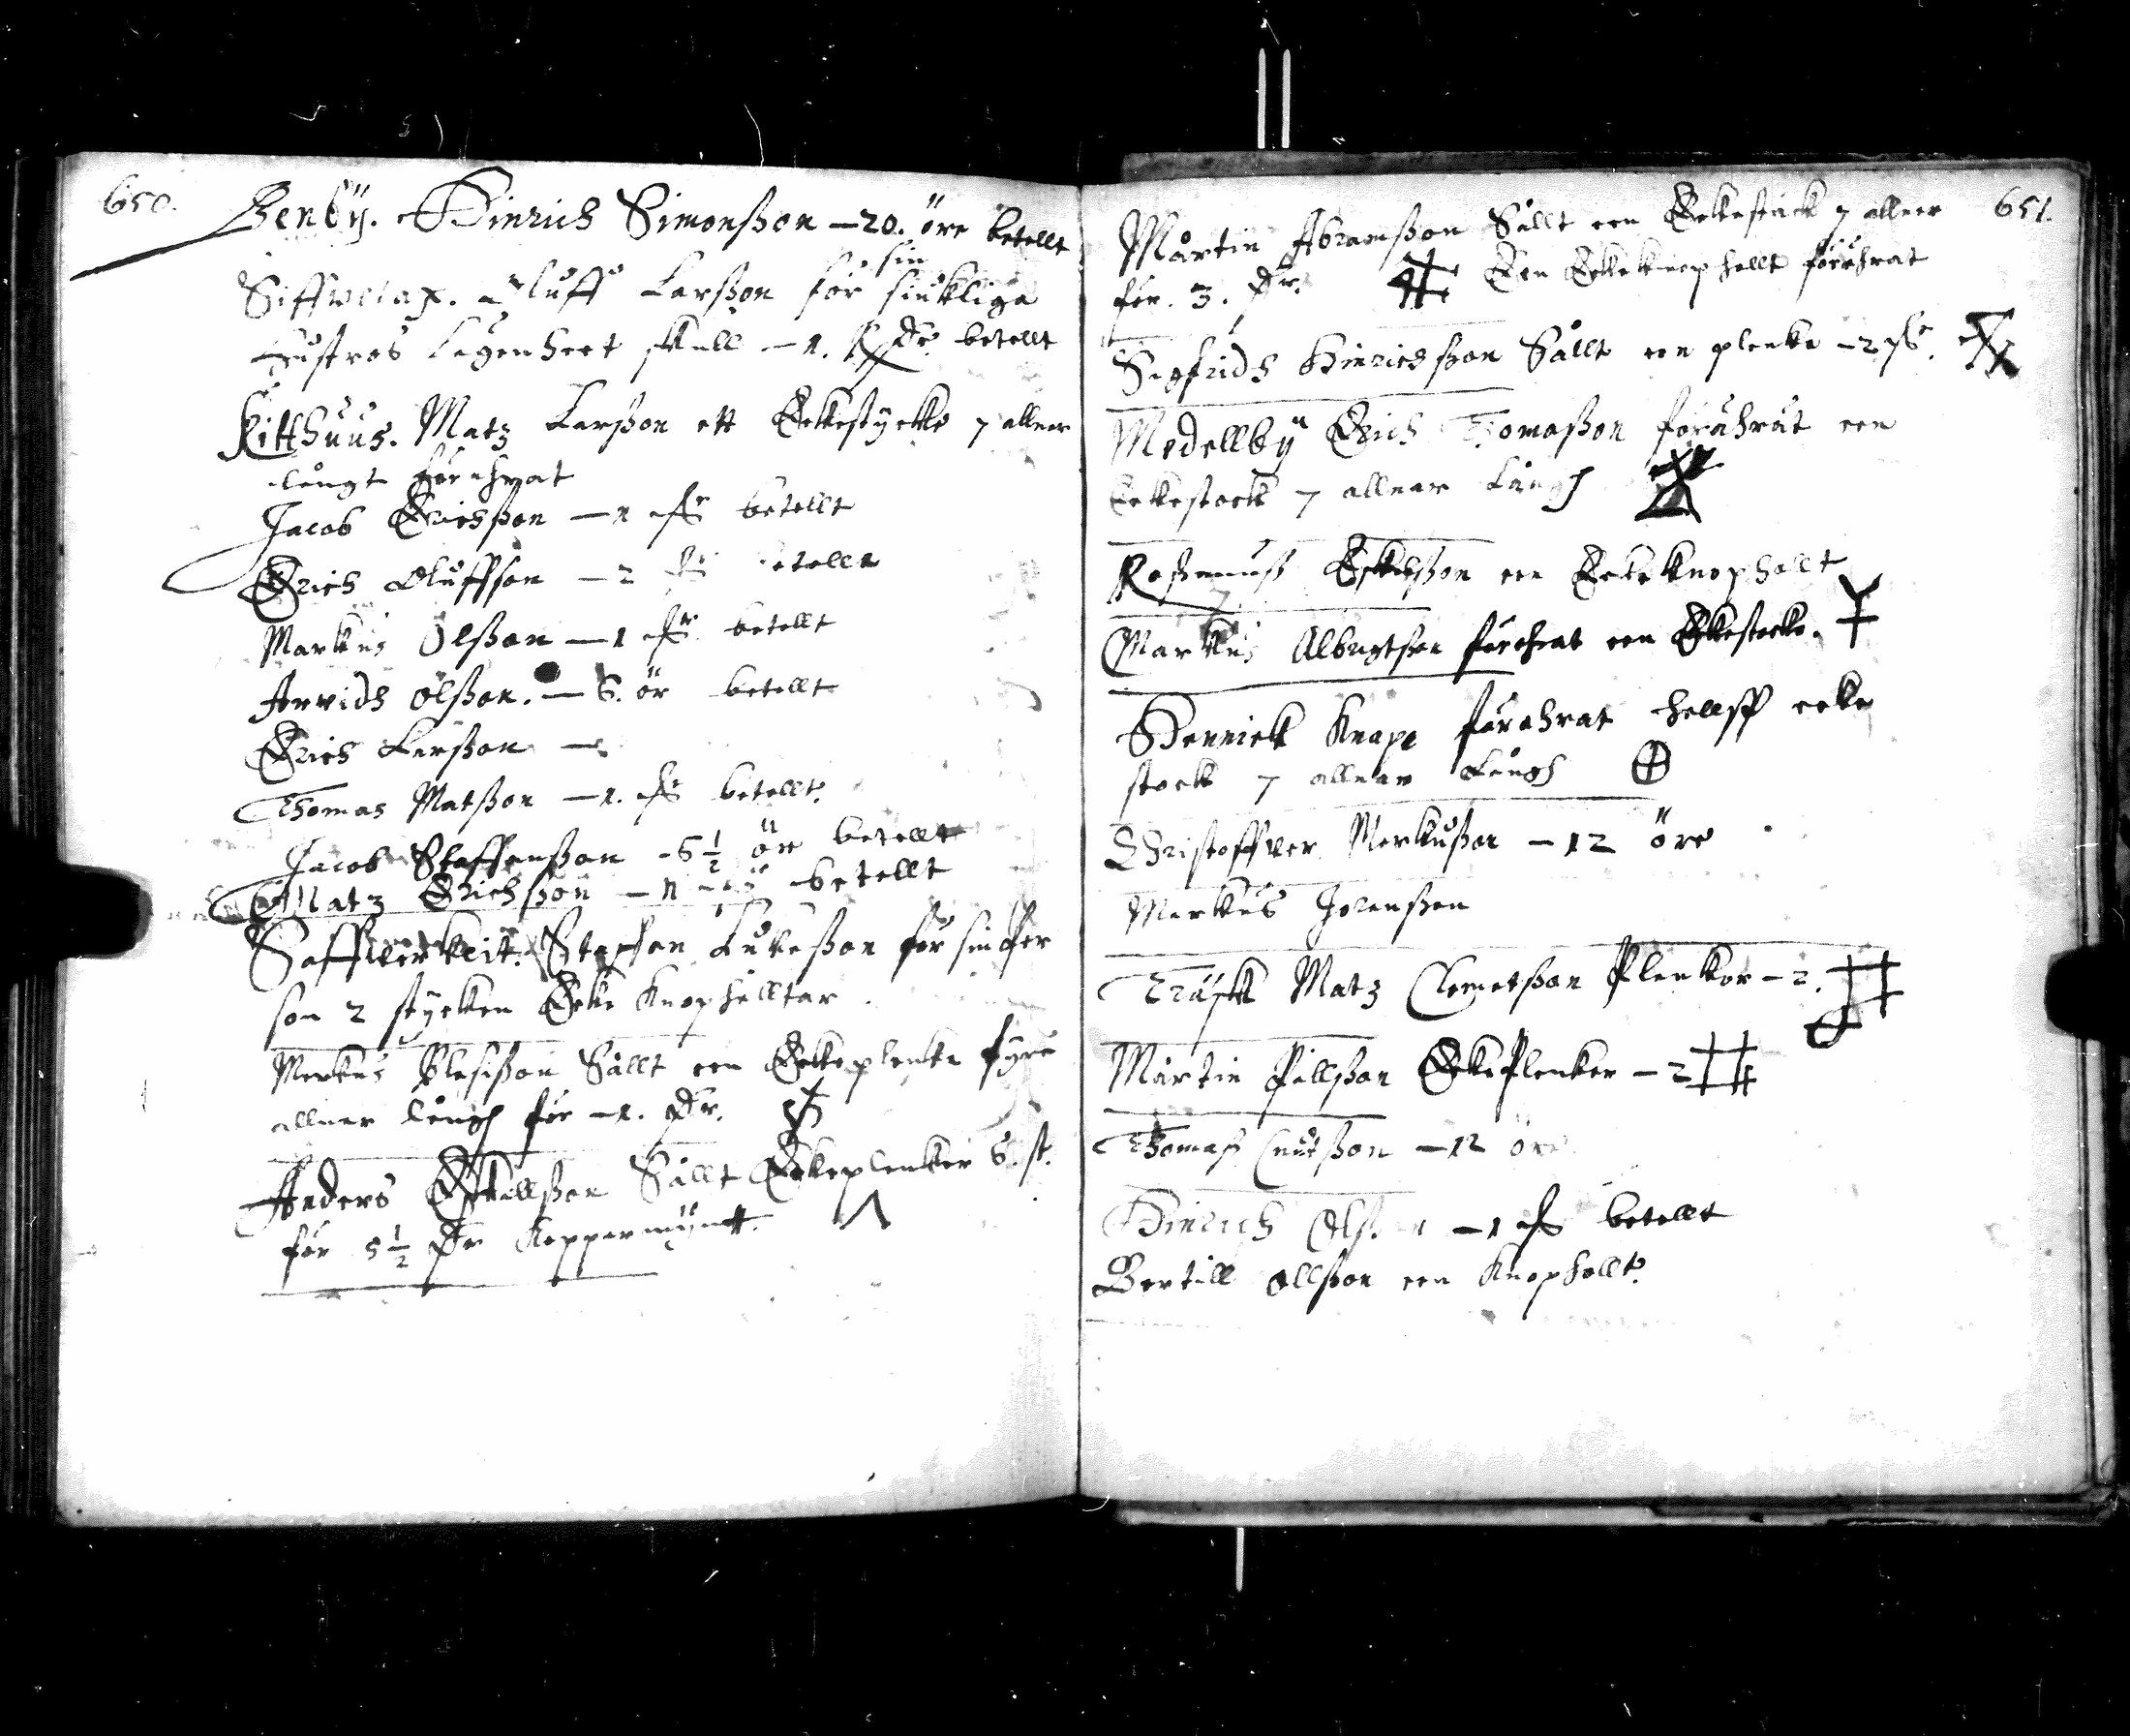 650.
Benbÿ. Hinrich Simonsson – 20. öre betellt
sin
Larsson för siukliga
hustros Legenheet skull – 1. Dr. betellt
Kitthuus. Matz Larsson ett Eekestycke 7 allnar
långt förährat
Jacob Erichsson – 1 betellt
Erich Oluffson – 2 betellt
Markus Olsson – 1 betellt
Arvidh Olsson. – 6. ör betellt
Erich Larsson –
Thomas Matsson – 1. betellt
Jacob Staffansson – 6 1/2 ör betellt
Matz Erichsson – 1 betellt
Staffan Lukasson för sin
son 2 stycken Eeke Knophelltar
Merkus Blasisson Sållt een Eekeplenke fyra
allnar långh för – 1. Dr.
Anders Eskellsson Sållt Eekeplenker 6. st.
för 5 1/2 Dr Koppermÿntt.
651.
Mårtin Abramsson Sållt een Eekestock 7 allnar
för. 3. Dr. Een Eekeknophellt förährat
Sigfridh Hinrichsson Sållt een plenke – 2
Medellbÿ Erich Thomasson förährat een
Eekestock 7 allnar Långh
Rasmuss Eskelsson een Eekeknophellt
Markus Albregtson förährat een Eekestocke.
Hennick Knape förährat hellfft eeke
stock 7 allnar Långh
Christoffver Merkusson – 12 öre
Merkus Joransson
Träsk Matz Clemetsson Plenkor – 2.
Mårtin Pållsson EekePlenker – 2
Thomass Cnutsson – 12 öre
Hinrich Olsson – 1 betellt
Bertill Ollsson een Knophellt